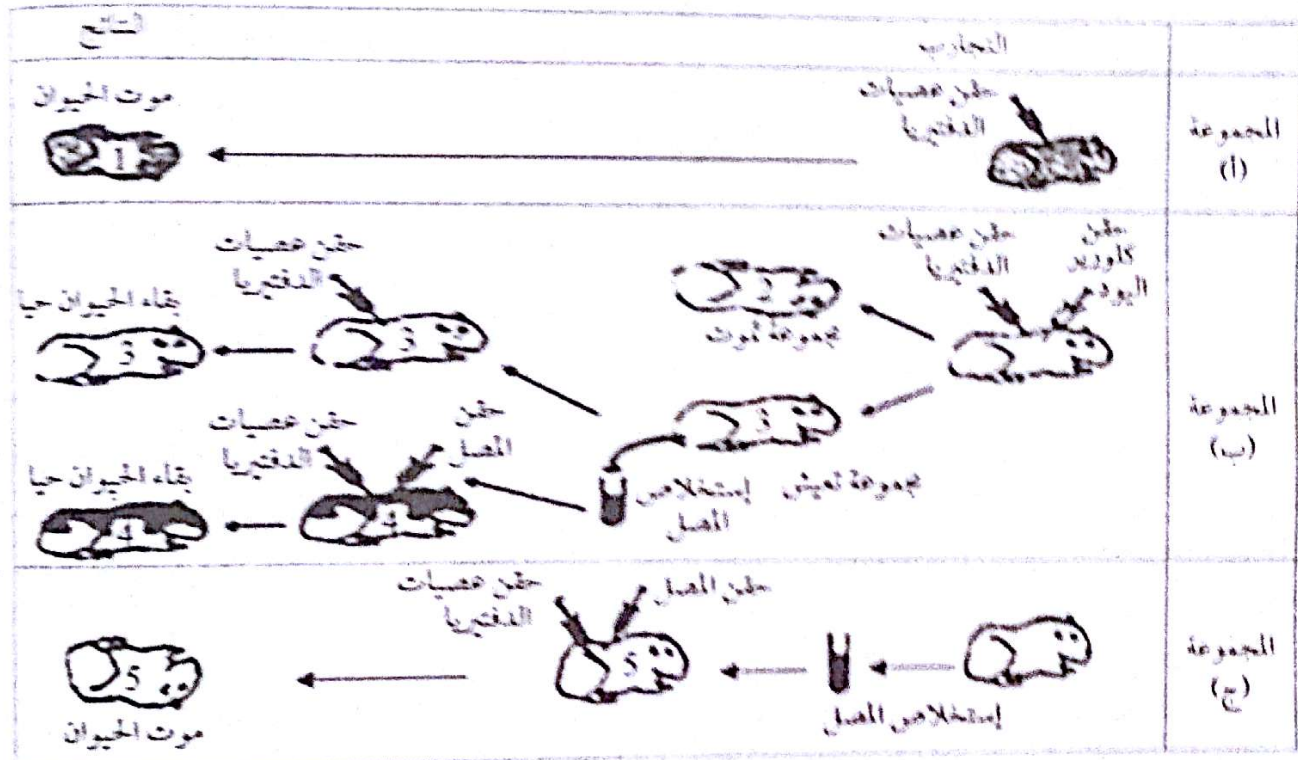 التجارب
النتائج
المجموعة
(أ)
حقن عصيات
الدفتيريا
موت الحيوان
1
المجموعة
(ب)
حقن
كلورير
اليود
حقن عصيات
الدفتيريا
2
مجموعة تموت
3
مجموعة تعيش
إستخلاص
المصل
حقن عصيات
الدفتيريا
3
بقاء الحيوان حيا
3
حقن
المصل
حقن عصيات
الدفتيريا
4
بقاء الحيوان حيا
4
المجموعة
(ج)
إستخلاص المصل
حقن المصل
حقن عصيات
الدفتيريا
5
5
موت الحيوان